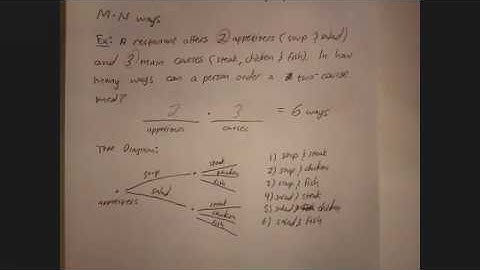 M·N ways
Ex: A restaurant offers 2 appetizers (soup & salad)
and 3 main courses (steak, chicken & fish). In how
many ways can a person order a two-course
meal?
2 · 3 = 6 ways
appetizers courses
Tree Diagram:
appetizers
soup
steak
chicken
fish
salad
steak
chicken
fish
1) soup & steak
2) soup & chicken
3) soup & fish
4) salad & steak
5) salad & chicken
6) salad & fish